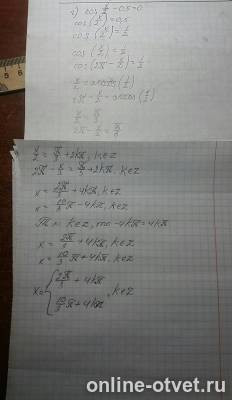 cos x/2 - 0,5 = 0
cos(x/2) = 0,5
cos(x/2) = 1/2
cos(x/2) = 1/2
cos(2π - x/2) = 1/2
x/2 = arccos(1/2)
2π - x/2 = arccos(1/2)
x/2 = π/3
2π - x/2 = π/3
x/2 = π/3 + 2kπ, k∈Z
2π - x/2 = π/3 + 2kπ, k∈Z
x = 2π/3 + 4kπ, k∈Z
x = 10/3 π - 4kπ, k∈Z
k∈Z, то -4kπ = 4kπ
x = 2π/3 + 4kπ, k∈Z
x = 10/3 π + 4kπ, k∈Z
x = { 2π/3 + 4kπ
10/3 π + 4kπ , k∈Z
online-otvet.ru